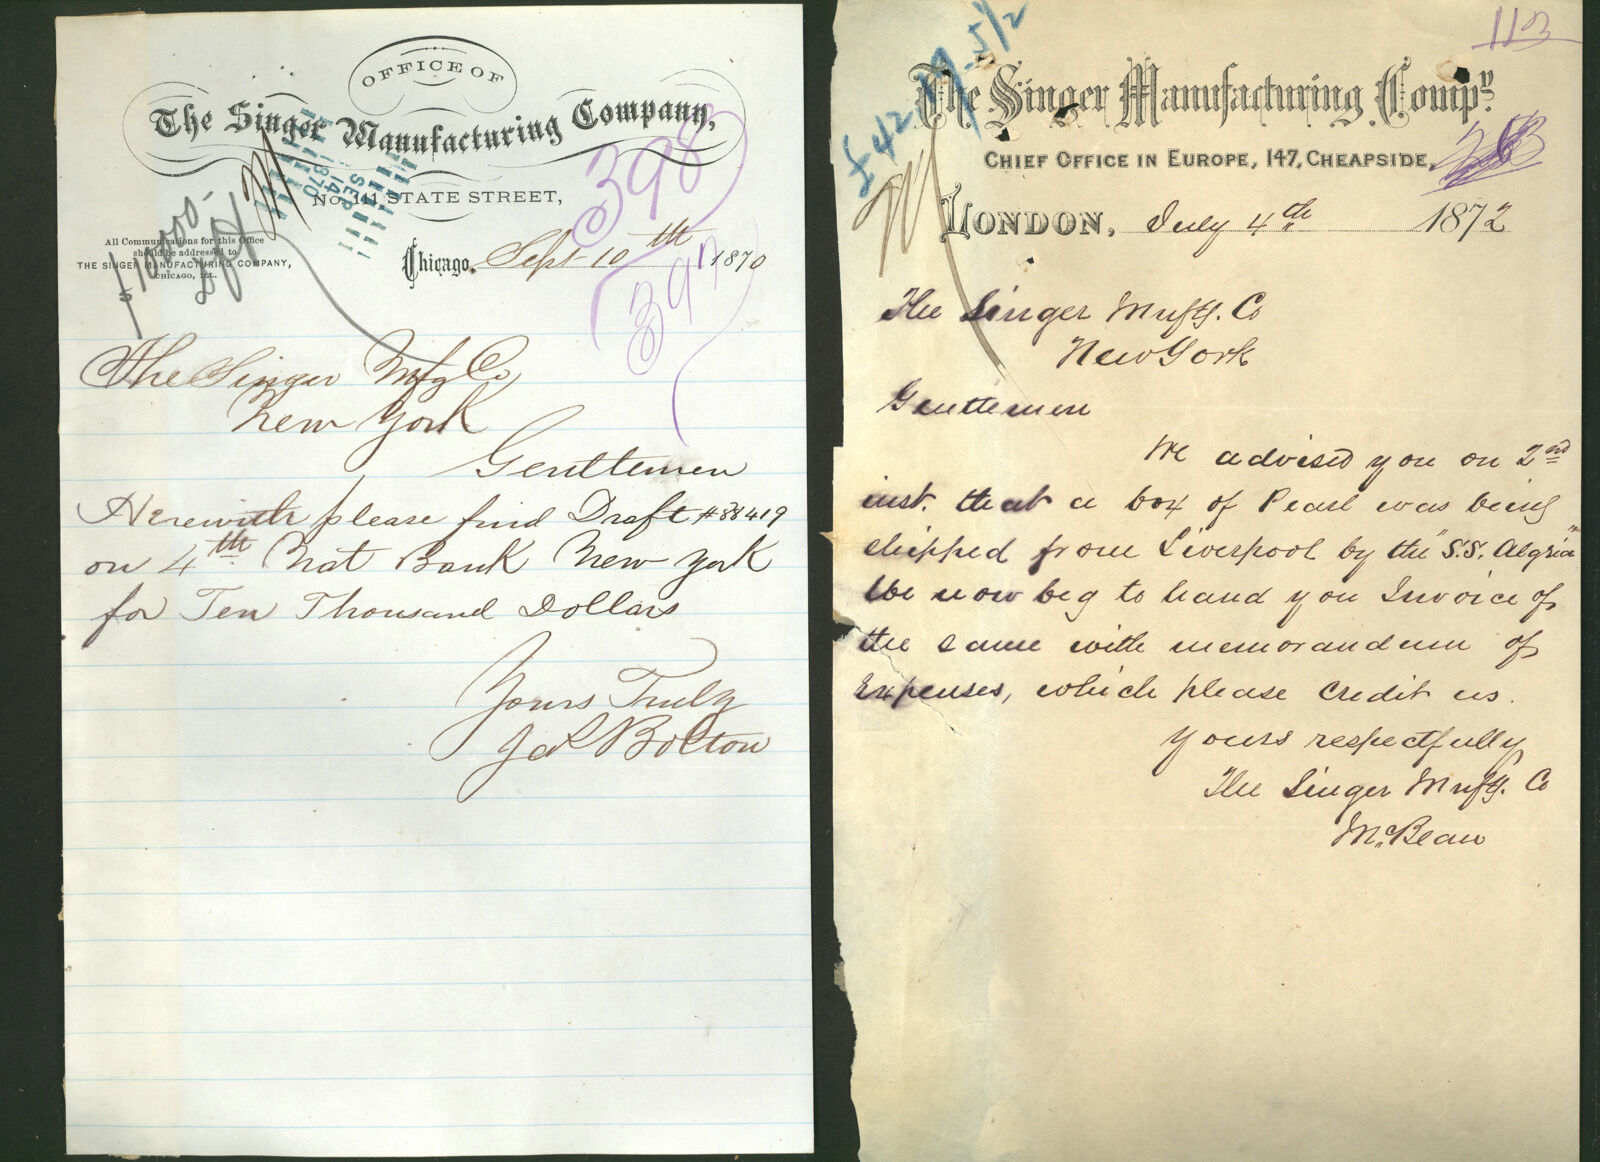 OFFICE OF
The Singer Manufacturing Company,
No. 111 STATE STREET,
All Communications for this Office
should be addressed to
THE SINGER MANUFACTURING COMPANY,
CHICAGO, ILL.
$10000-
SEP
14
1870
3983
Chicago, Sept 10th 1870
The Singer Mfg Co,
New York
Gentlemen
Herewith please find Draft #38419
on 4th Nat Bank New York
for Ten Thousand Dollars
Yours Truly
Jas Bolton
113
£42 19 5/2
The Singer Manufacturing Compy.
CHIEF OFFICE IN EUROPE, 147, CHEAPSIDE,
LONDON, July 4th 1872
The Singer Mnfg. Co
New York
Gentlemen
We advised you on 2nd
inst. that a box of Pearl was being
shipped from Liverpool by the "S.S. Algria"
We now beg to hand you Invoice of
the same with memorandum of
Expenses, which please credit us.
Yours respectfully
The Singer Mnfg. Co
McBean